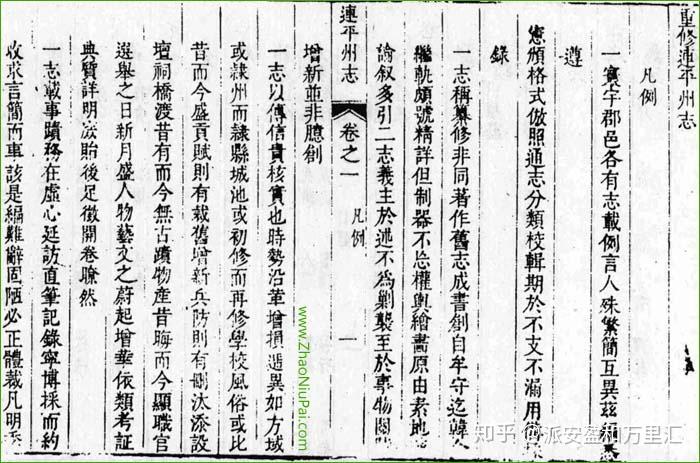 重修連平州志
凡例
一寰宇郡邑各有志載例言人殊繁簡互異茲
遵
憲頒格式倣照通志分類校輯期於不支不漏用
錄
一志稱纂修非同著作舊志成書創自牟守迄韓
繼軌頗號精詳但制器不忘權輿繪畵原由素地
論叙多引二志義主於述不為剿襲至於事物
連平州志
卷之一
凡例
一
增新並非臆創
一志以傳信貴核實也時勢沿革增損遞異如方域
或隸州而隸縣城池或初修而再修學校風俗或比
昔而今盛貢賦則有裁舊增新兵防則有刪汰添設
壇祠橋渡昔有而今無古蹟物産昔晦而今顯職官
選舉之日新月盛人物藝文之蔚起增華依類考証
典質詳明淡貽後足徵開卷瞭然
一志載事蹟務在虛心延訪直筆記錄寧博採而約
收求言簡而事該是編難辭固陋必正體裁凡明
www.ZhaoNiuPai.com
知乎 @派安盈和万里汇